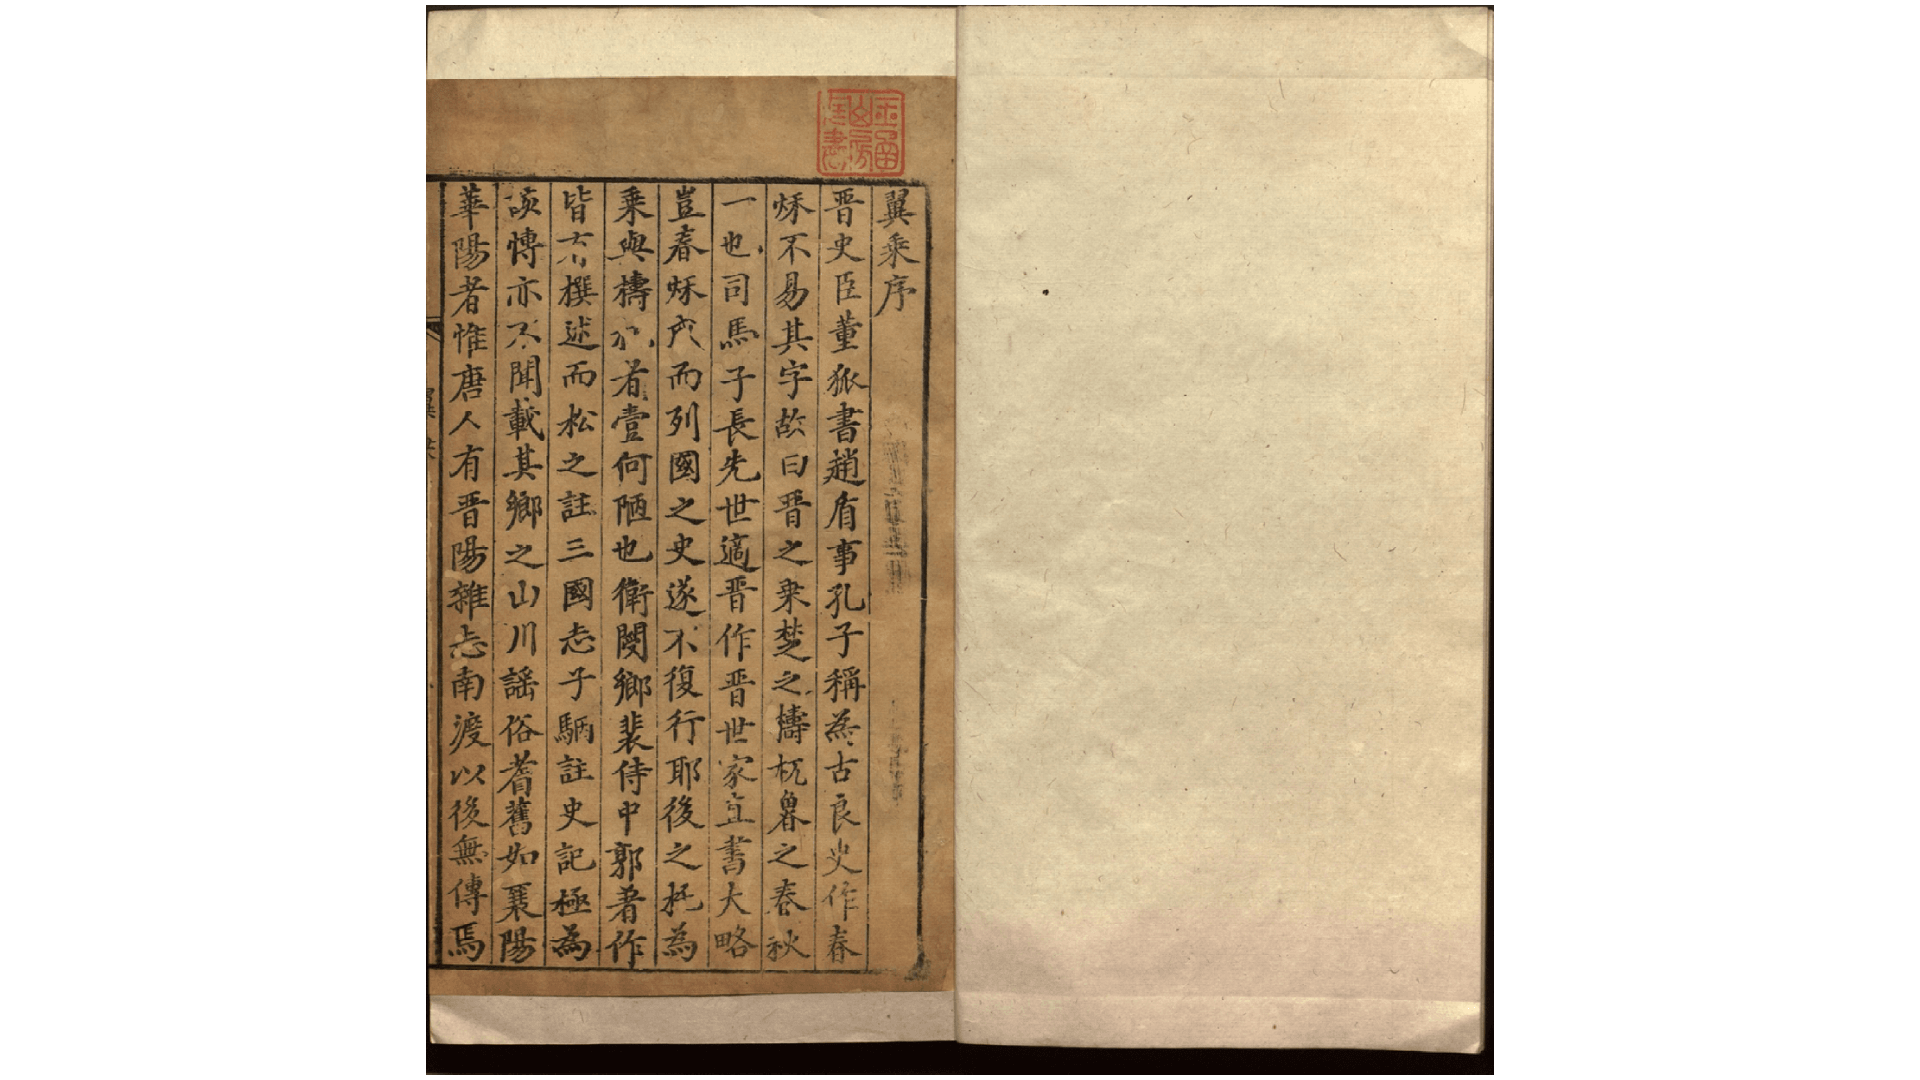 玉函山房藏書
翼乘序
晉史臣董狐書趙盾事孔子稱為古良史作春
秌不易其字故曰晉之乗楚之檮杌魯之春秋
一也司馬子長先世適晉作晉世家立書大略
豈春秌而列國之史遂不復行耶後之托為
乗與檮者壹何陋也衛閿鄉裴侍中郭著作
皆有撰述而松之註三國志子駰註史記極為
該博亦不聞載其鄉之山川謠俗耆舊如襄陽
華陽者惟唐人有晉陽雜志南渡以後無傳焉